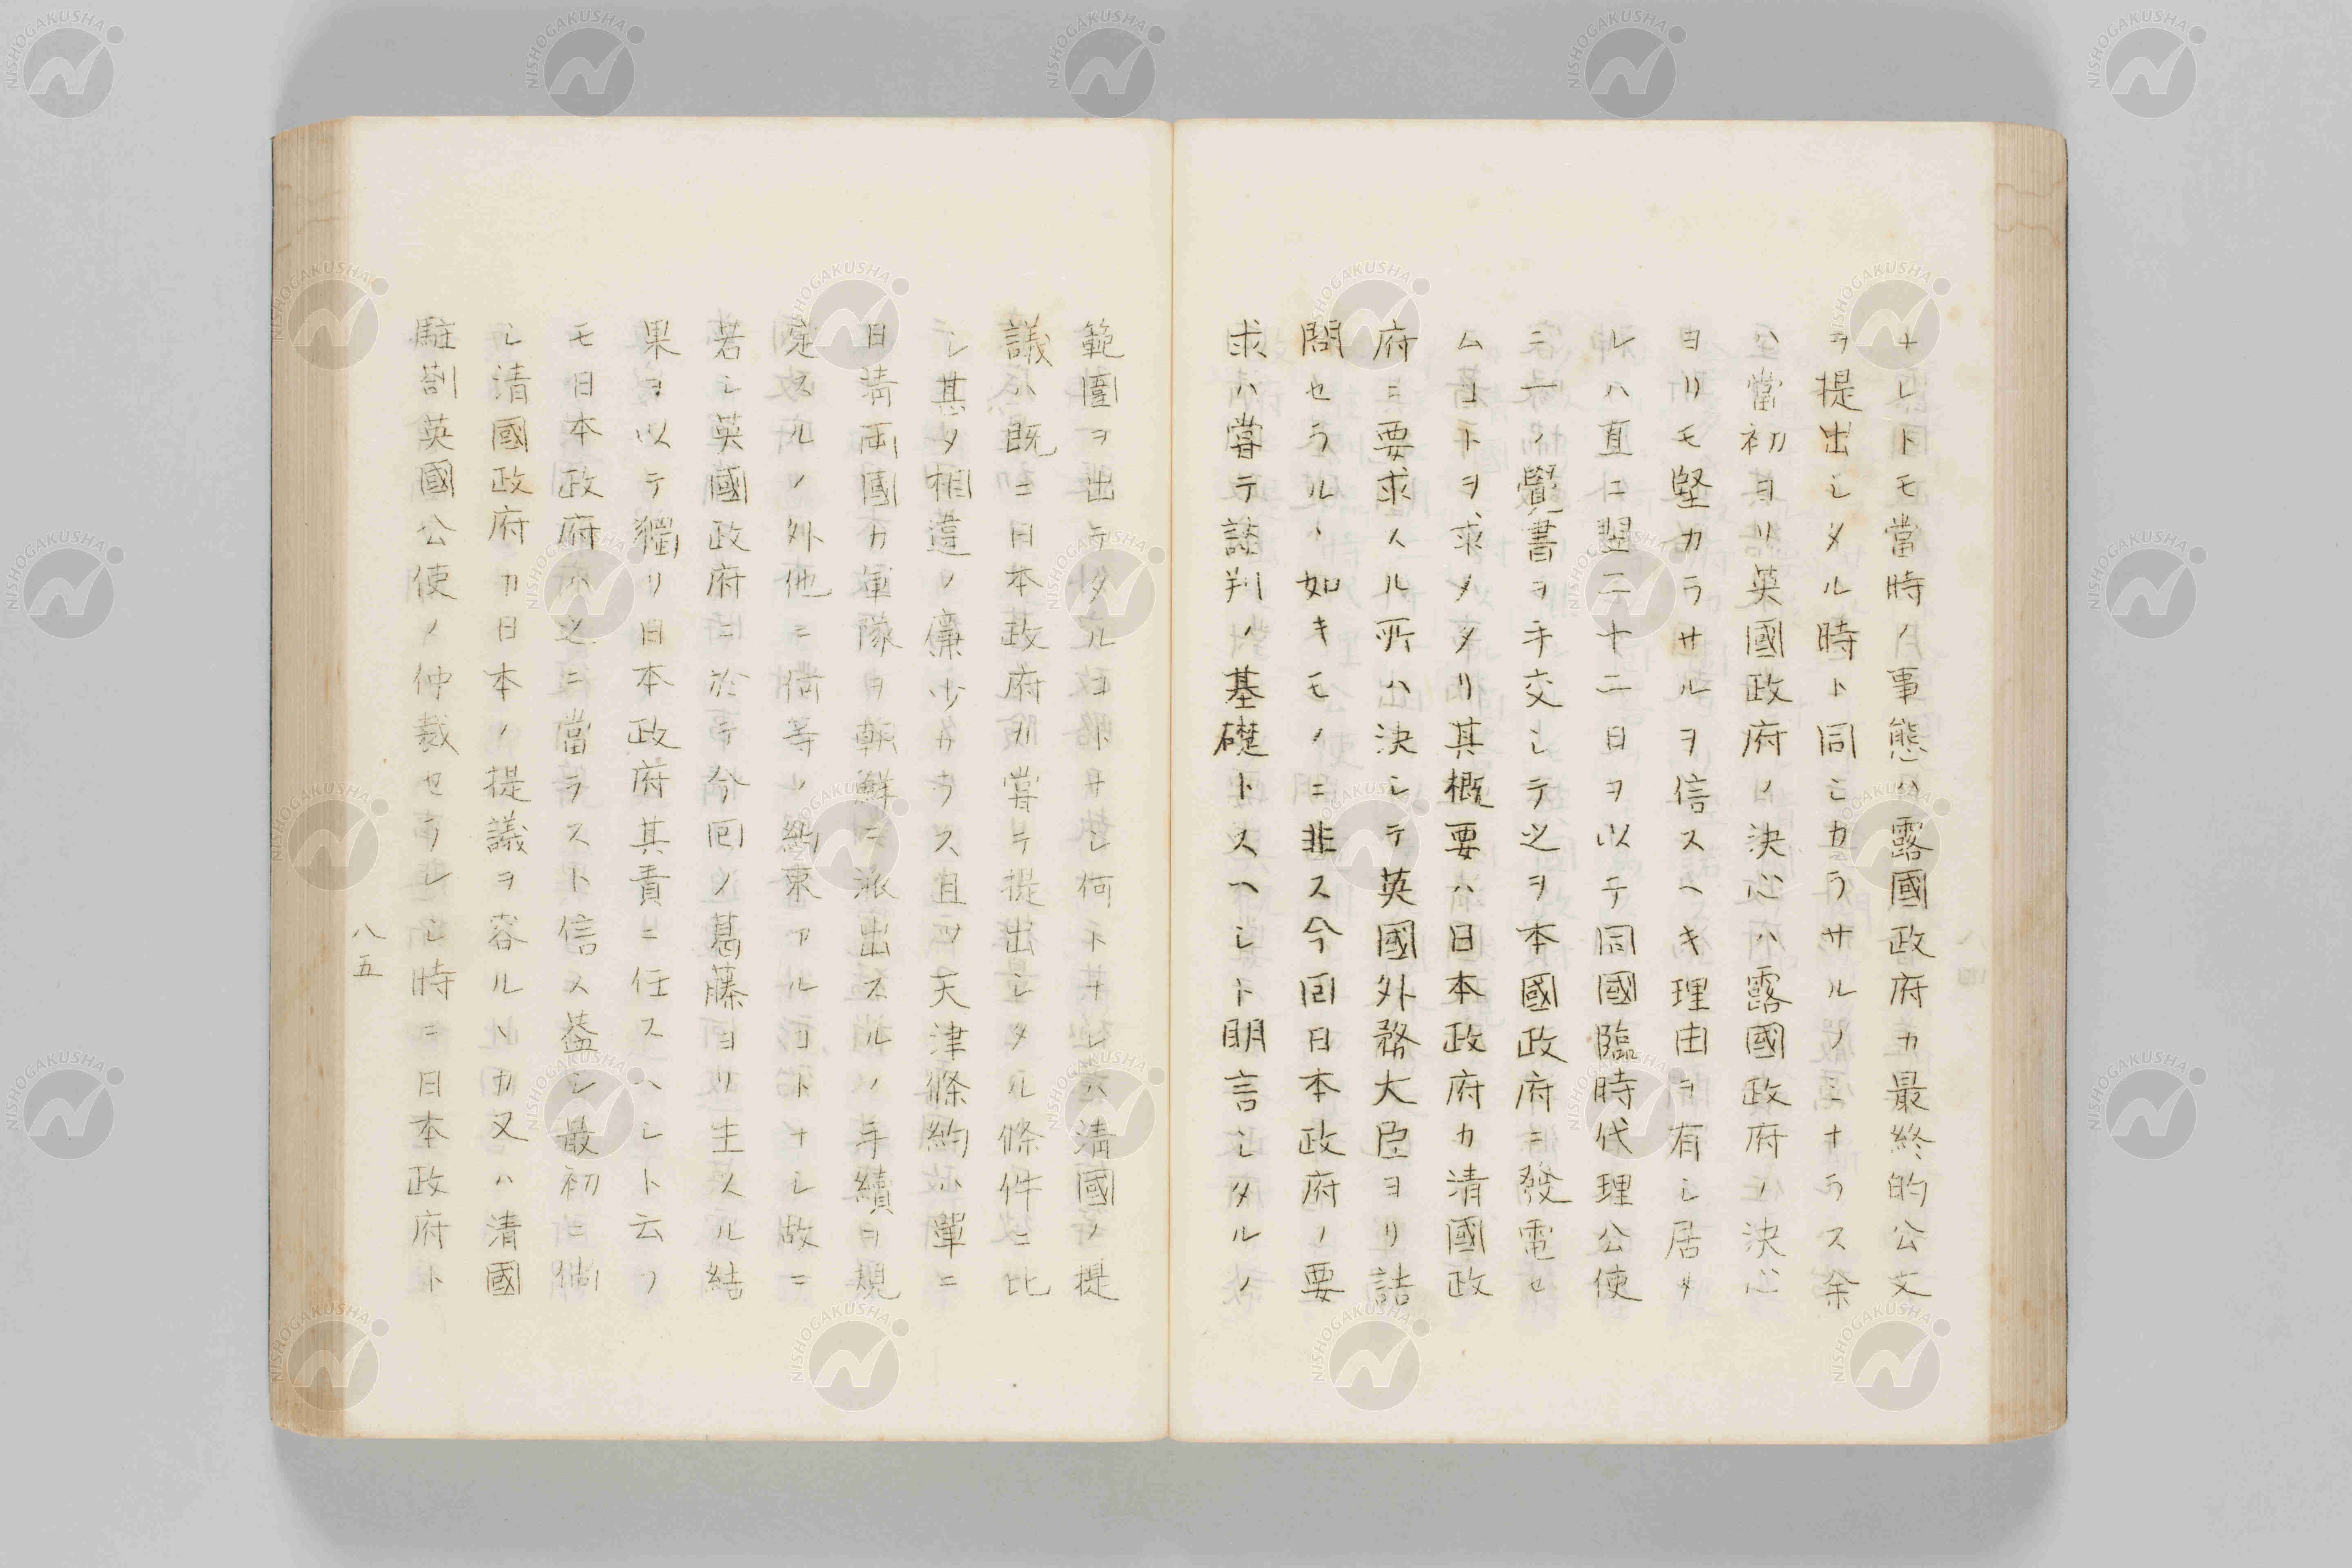 ナレトモ當時ノ事態ハ露國政府カ最終的公文
ヲ提出シタル時ト同シカラサルノミナラス余
ハ當初ヨリ英國政府ノ決心ハ露國政府ノ決心
ヨリモ堅カラサルヲ信スヘキ理由ヲ有シ居タ
レハ直ニ翌二十二日ヲ以テ同國臨時代理公使
ニ一ノ覺書ヲ手交シテ之ヲ本國政府ニ發電セ
ムコトヲ求メタリ其概要ハ日本政府カ清國政
府ニ要求スル所ハ決シテ英國外務大臣ヨリ詰
問セラルヽ如キモノニ非ス今回日本政府ノ要
求ハ嘗テ談判ノ基礎トスヘシト明言シタルノ
範圍ヲ出テタルヨトナシ何トナレハ清國ノ提
議ハ既ニ日本政府カ嘗テ提出シタル條件ニ比
シ其タ相違ノ廉少カラス且ツ天津條約ハ單ニ
日清兩國カ軍隊ヲ朝鮮ニ派出スルノ手續ヲ規
定スルノ外他ニ何等ノ約束アルコトナシ故ニ
若シ英國政府ニ於テ今回ノ葛藤ヨリ生スル結
果ヲ以テ獨リ日本政府其責ニ任スヘシト云フ
モ日本政府ハ之ニ當ラスト信ス蓋シ最初ニ倘
シ清國政府カ日本ノ提議ヲ容ルヽカ又ハ清國
駐劄英國公使ノ仲裁セラレシ時ニ日本政府ト
八五
NISHOGAKUSHA